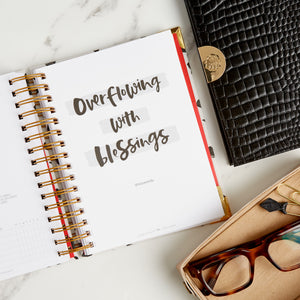 Overflowing
with
blessings